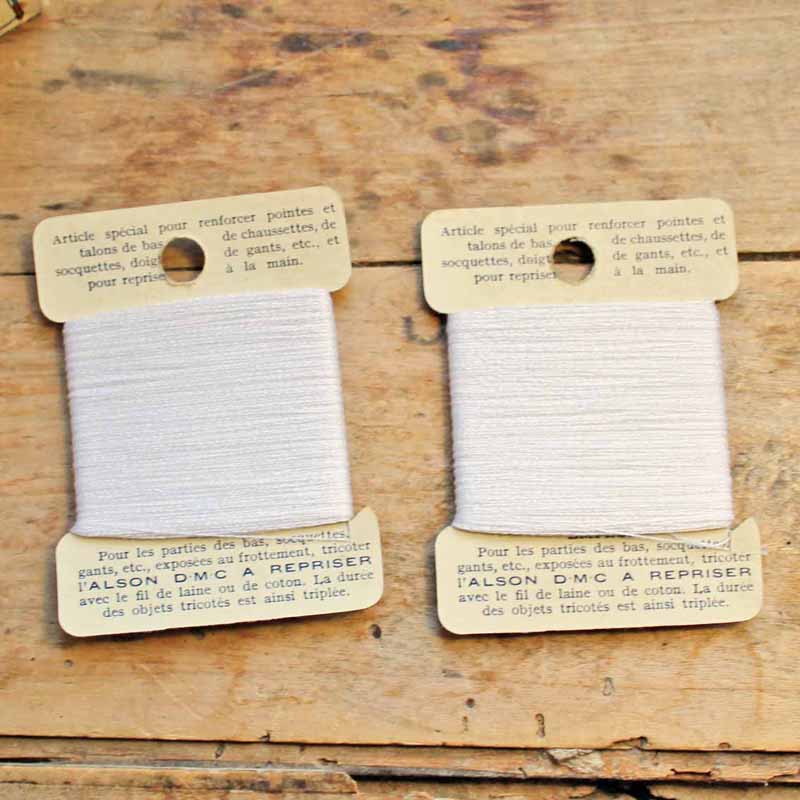 Article spécial pour renforcer pointes et
talons de bas de chaussettes, de
socquettes, doigt de gants, etc., et
pour repriser à la main.
Pour les parties des bas, socquettes,
gants, etc., exposées au frottement, tricoter
l'ALSON D·M·C A REPRISER
avec le fil de laine ou de coton. La durée
des objets tricotés est ainsi triplée.
Article spécial pour renforcer pointes et
talons de bas de chaussettes, de
socquettes, doigt de gants, etc., et
pour repriser à la main.
Pour les parties des bas,
gants, etc., exposées au frottement, tricoter
l'ALSON D·M·C A REPRISER
avec le fil de laine ou de coton. La durée
des objets tricotés est ainsi triplée.